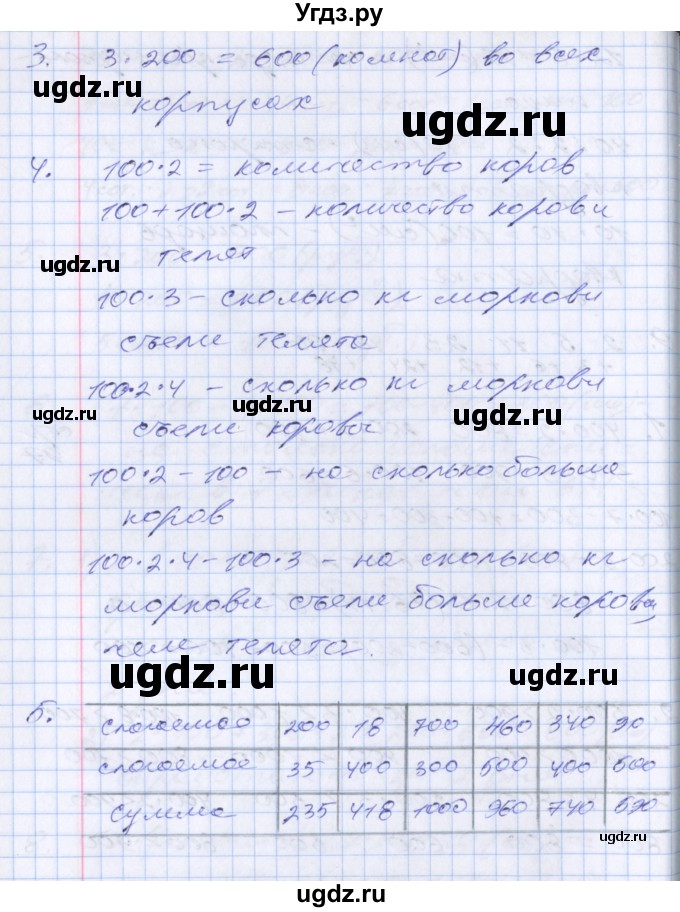 Угдз.ру
3. 3·200 = 600 (комнат) во всех
корпусах
ugdz.ru ugdz.ru
4. 100·2 = количество коров
100+100·2 – количество коров и
телят
ugdz.ru ugdz.ru
100·3 – сколько кг моркови
съели телята
100·2·4 – сколько кг моркови
ugdz.ru ugdz.ru ugdz.ru
съели коровы
100·2 – 100 – на сколько больше
коров
100·2·4 – 100·3 – на сколько кг
моркови съели больше коровы
чем телята.
ugdz.ru ugdz.ru
5. слагаемое 200 18 700 460 340 90
слагаемое 35 400 300 500 400 500
сумма 235 418 1000 960 740 590
ugdz.ru ugdz.ru
ugdz.ru